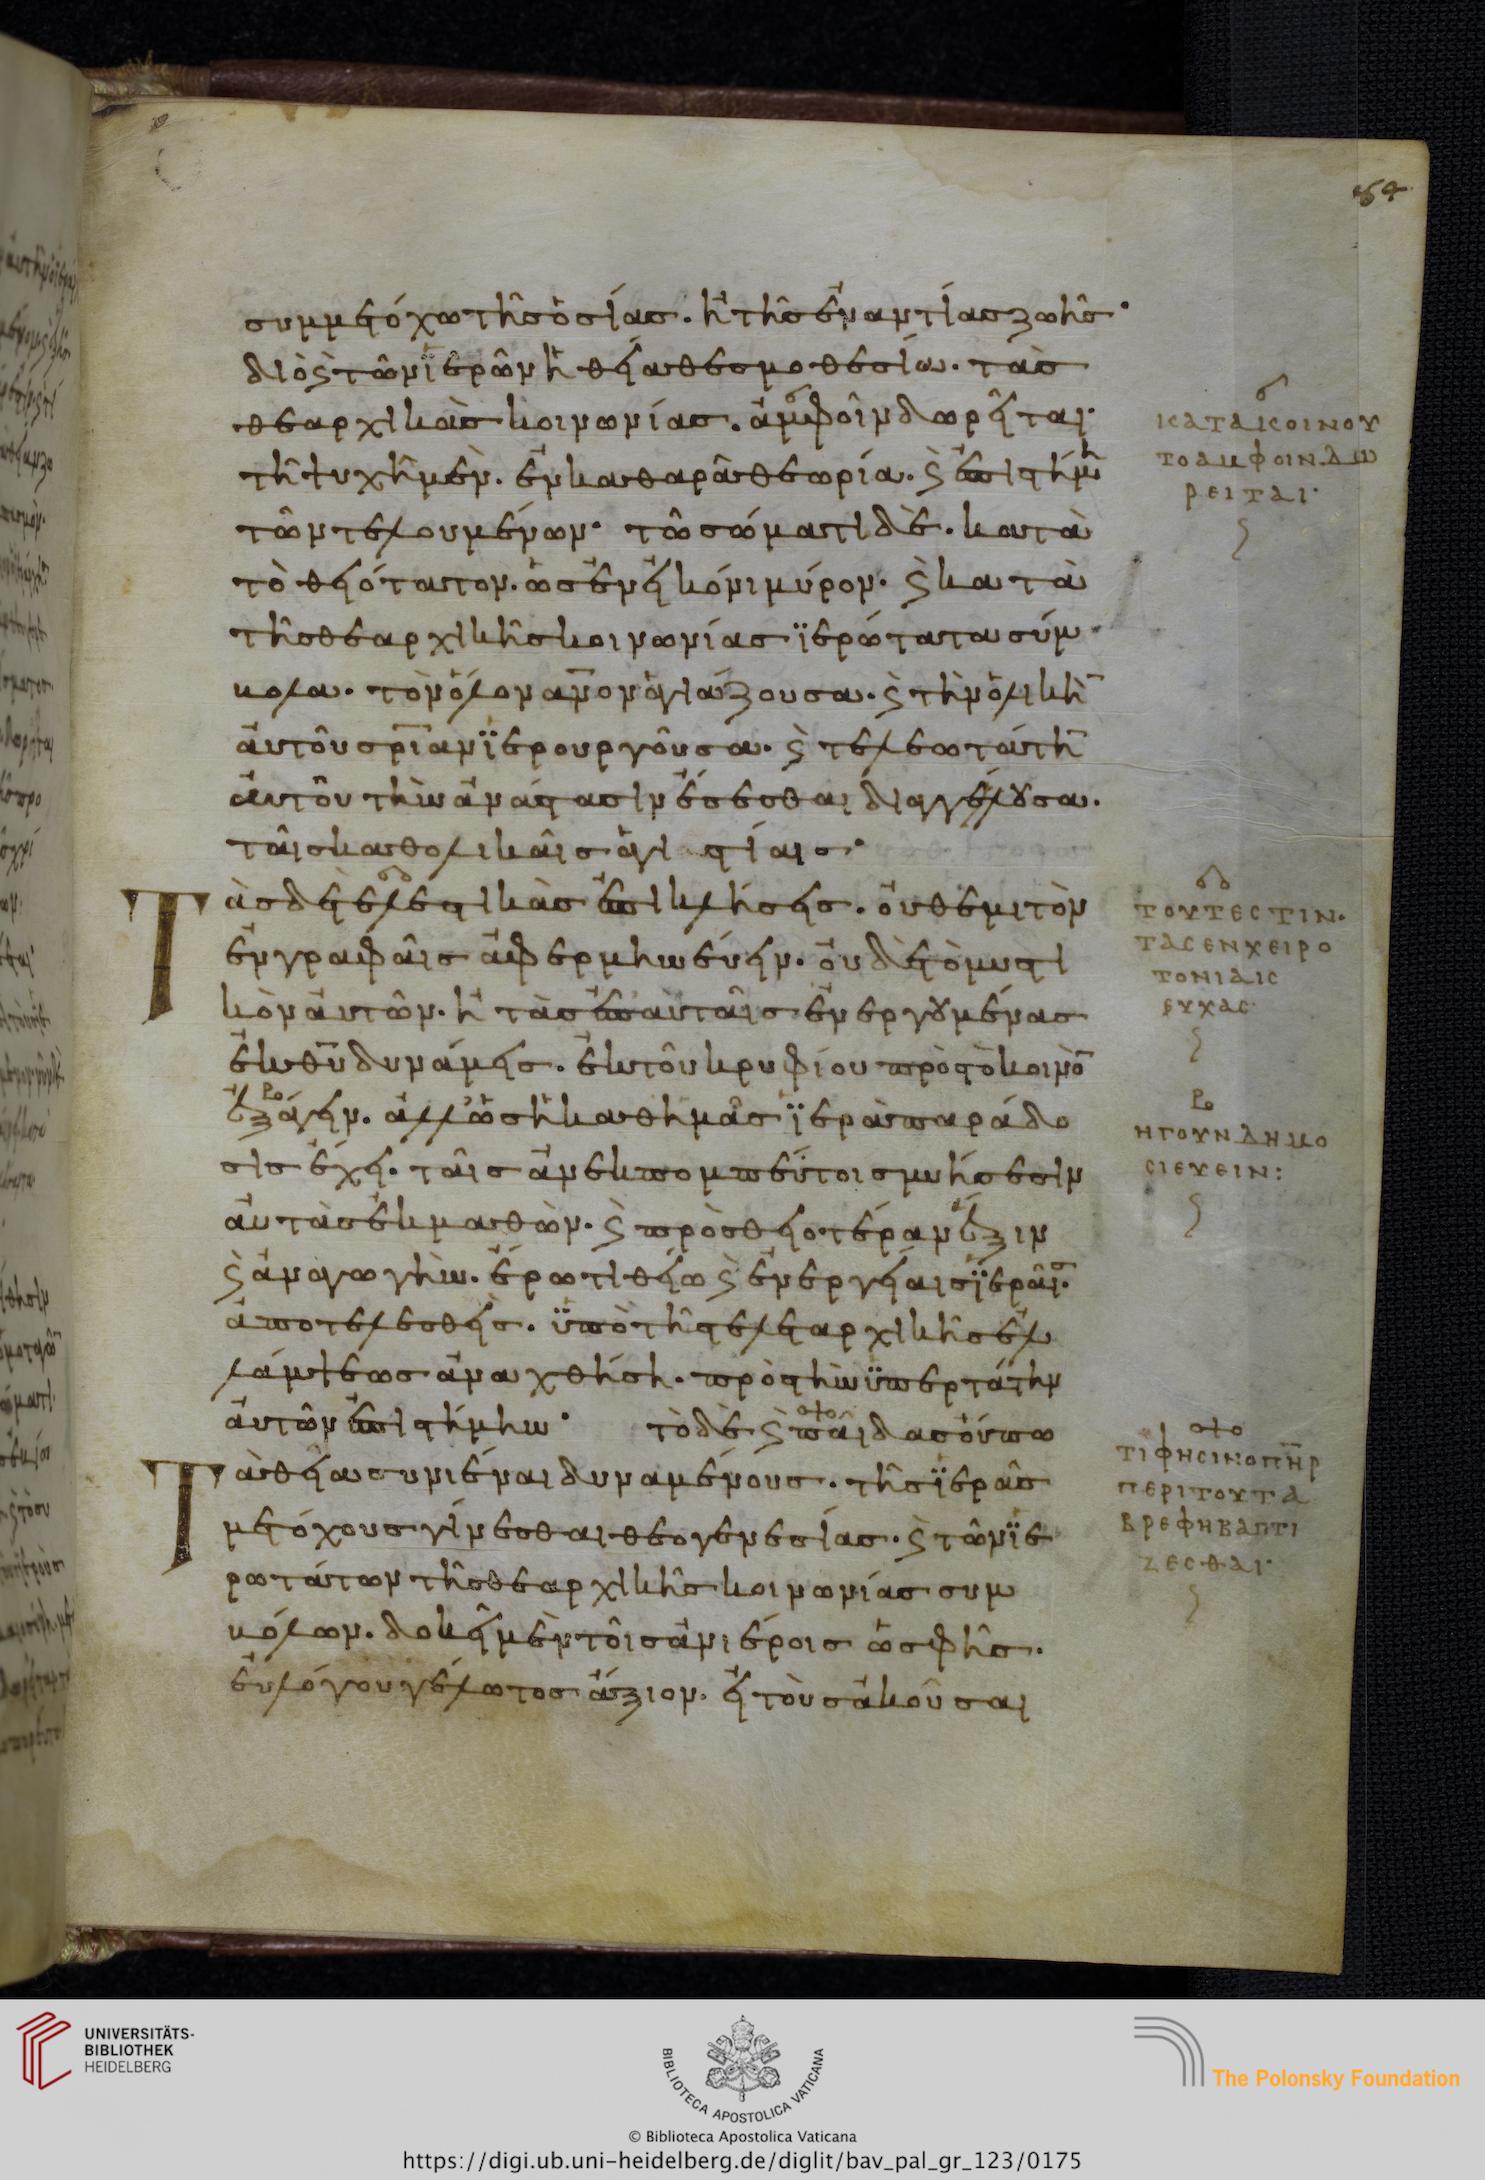 64
συμμετόχω τῆς ὁσίας. ἢ τῆς ἐναντίας ζωῆς·
διὸ ϛ τῶν ϊερῶν ἡ θεία θεσμοθεσία. τὰς
θεαρχικὰς κοινωνίας. ἀμφοῖν δωρεῖται·
τῆ ψυχῆ μὲν. ἐν καθαρᾶ θεωρία. ϛ ἐπιστήμη
τῶν τελουμένων· τῶ σώματι δὲ. κατὰ
τὸ θειότατον. ὡς ἐν εἰκόνι μύρον. ϛ κατὰ
τῆς θεαρχικῆς κοινωνίας ϊερώτατα σύμ
βολα. τὸν ὅλον ανον ἁγιάζουσα. ϛ τὴν ὁλικὴ
αὐτοῦ σριαν ϊερουργοῦσα. ϛ τελεωτάτη
αὐτοῦ τὴν ἀνάστασιν ἔσεσθαι διαγγέλουσα.
ταῖς καθολικαῖς ἁγιστίαις·
Τὰς δὲ τελεστικὰς ἐπικλήσεις. οὐ θεμιτὸν
ἐν γραφαῖς ἀφερμηνεύειν. οὐδὲ τὸ μυστι
κὸν αὐτῶν. ἢ τὰς ἐπ αὐταῖς ἐνεργουμένας
ἐκ θυ δυνάμεις. ἐκ τοῦ κρυφίου πρὸς τὸ κοινὸ
ἐξάγειν. ἀλλ ὡς ἡ καθ ημᾶς ϊερὰ παράδο
σις ἔχει. ταῖς ἀνεκπομπεύτοις μυήσεσιν
αὐτὰς ἐκμαθὼν. ϛ πρὸς θειοτέραν ἕξιν
ϛ ἀναγωγὴν. ἔρωτι θείω ϛ ἐνεργείαις ϊεραῖς.
ἀποτελεσθεὶς. ϋπὸ τῆς τελεταρχικῆς ἐλ
λάμψεως ἀναχθήση. πρὸς τὴν ϋπερτάτην
αὐτῶν ἐπιστήμην· τὸ δὲ ϛ παῖδας οὔπω
Τὰ θεῖα συνιέναι δυναμένους. τῆς ϊερᾶς
μετόχους γίνεσθαι θεογενεσίας. ϛ τῶν ϊε
ρωτάτων τῆς θεαρχικῆς κοινωνίας συμ
βόλων. δοκεῖ μὲν τοῖς ἀνιέροις ὡς φῆς.
εὐλόγου γέλωτος ἄξιον. εἰ τοὺς ἀκοῦσαι
ΚΑΤΑ ΚΟΙΝΟΥ
ΤΟ ΑΜΦΟΙΝ ΔΩ
ΡΕΙΤΑΙ·
ΤΟΥΤΕΣΤΙΝ·
ΤΑΣ ΕΝ ΧΕΙΡΟ
ΤΟΝΙΑΙΣ
ΕΥΧΑΣ·
ΗΓΟΥΝ ΔΗΜΟ
ΣΙΕΥΕΙΝ:
ΤΙ ΦΗΣΙΝ Ο ΠΗΡ
ΠΕΡΙ ΤΟΥ ΤΑ
ΒΡΕΦΗ ΒΑΠΤΙ
ΖΕΣΘΑΙ·
UNIVERSITÄTS-
BIBLIOTHEK
HEIDELBERG
BIBLIOTECA APOSTOLICA VATICANA
The Polonsky Foundation
© Biblioteca Apostolica Vaticana
https://digi.ub.uni-heidelberg.de/diglit/bav_pal_gr_123/0175